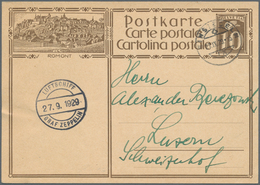 Postkarte
Carte postale
Cartolina postale
10
ROMONT
LUFTSCHIFF
27.9.1929
GRAF ZEPPELIN
Herrn
Alexander
Luzern
Schweizerhof